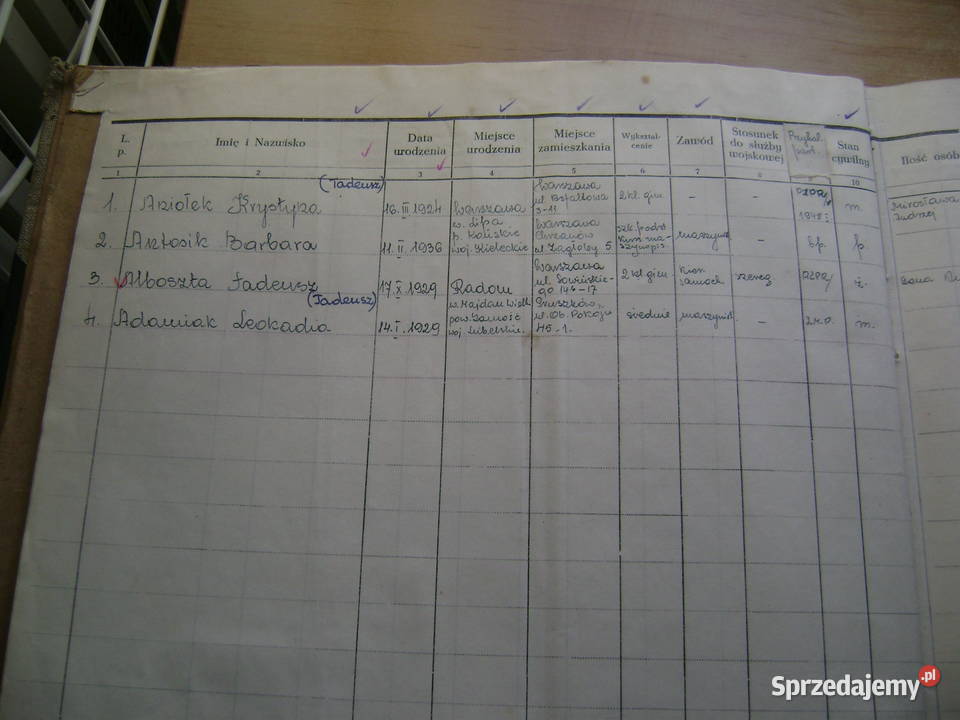 L. p.
Imię i Nazwisko
Data urodzenia
Miejsce urodzenia
Miejsce zamieszkania
Wykształcenie
Zawód
Stosunek do służby wojskowej
Przynal. part.
Stan cywilny
Ilość osób
1 2 3 4 5 6 7 8 9 10
(Tadeusz)
1. Aniołek Krystyna 16.III 1924 Warszawa
Warszawa
ul.
3-11
2 kl. gim - - m.
Mirosława
Andrzej
2. Antosik Barbara 11.II.1936
w. Lipa
p.
woj. Kieleckie
Warszawa
ul. Zagłoby 5
- bp. p.
3. Alboszta Tadeusz 17.X 1929 Radom
Warszawa
2 kl. gim
szereg. ż.
(Tadeusz)
4. Adamiak Leokadia 14.I.1929
w. Majdan Wielk
pow. Zamość
woj. Lubelskie.
Pruszków,
ul. Ob. Pokoju
45-1.
średnie maszynist. - m.
Sprzedajemy.pl